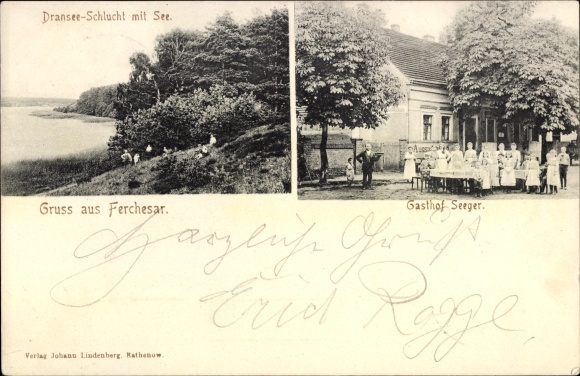 Dransee-Schlucht mit See.
Gruss aus Ferchesar.
Gasthof Seeger.
Herzliche Gruß
Erich Rogge
Verlag Johann Lindenberg, Rathenow.